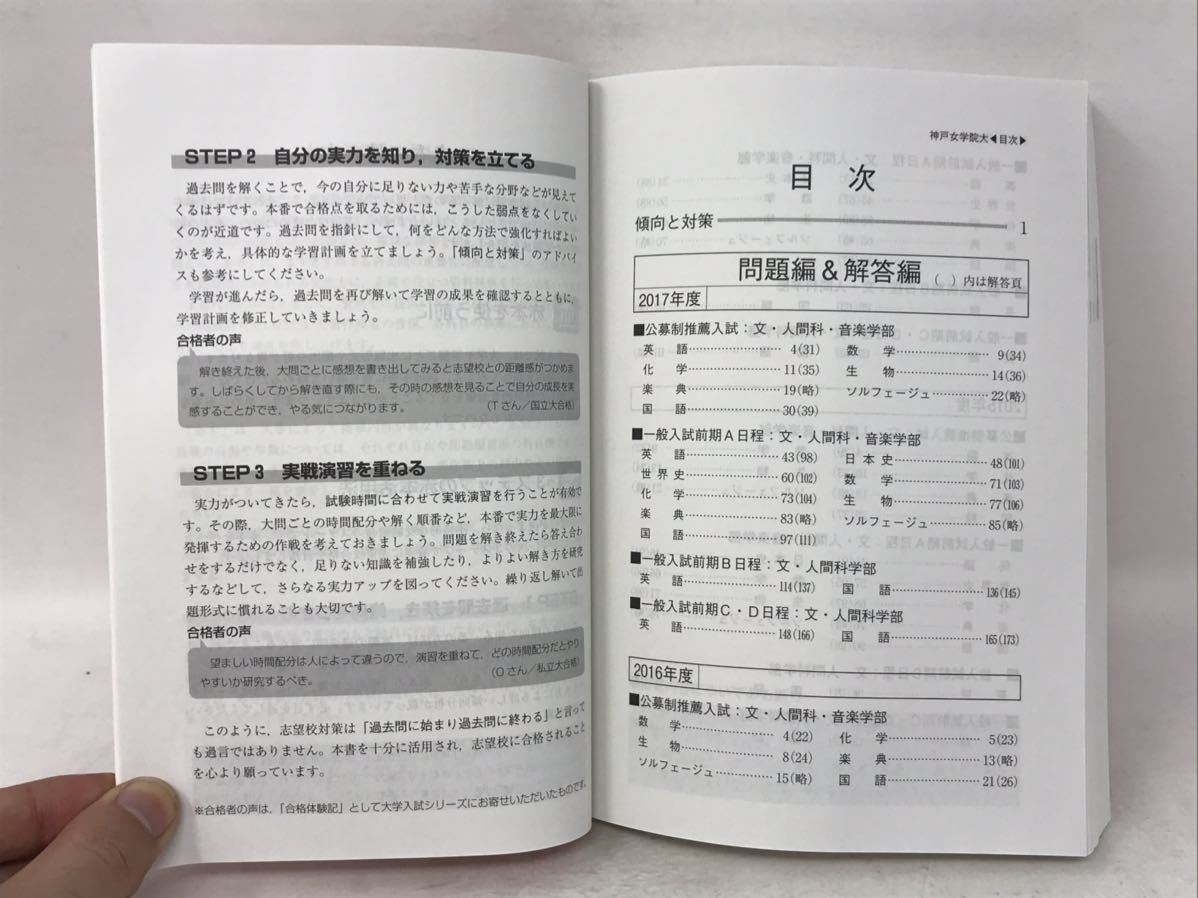 STEP 2 自分の実力を知り，対策を立てる
過去問を解くことで，今の自分に足りない力や苦手な分野などが見えて
くるはずです。本番で合格点を取るためには，こうした弱点をなくしてい
くのが近道です。過去問を指針にして，何をどんな方法で強化すればよい
かを考え，具体的な学習計画を立てましょう。「傾向と対策」のアドバイ
スも参考にしてください。
学習が進んだら，過去問を再び解いて学習の成果を確認するとともに，
学習計画を修正していきましょう。
合格者の声
解き終えた後，大問ごとに感想を書き出してみると志望校との距離感がつかめま
す。しばらくしてから解き直す際にも，その時の感想を見ることで自分の成長を実
感することができ，やる気につながります。　（Tさん／国立大合格）
STEP 3 実戦演習を重ねる
実力がついてきたら，試験時間に合わせて実戦演習を行うことが有効で
す。その際，大問ごとの時間配分や解く順番など，本番で実力を最大限に
発揮するための作戦を考えておきましょう。問題を解き終えたら答え合わ
せをするだけでなく，足りない知識を補強したり，よりよい解き方を研究
するなどして，さらなる実力アップを図ってください。繰り返し解いて出
題形式に慣れることも大切です。
合格者の声
望ましい時間配分は人によって違うので，演習を重ねて，どの時間配分だとやり
やすいか研究するべき。　（Oさん／私立大合格）
このように，志望校対策は「過去問に始まり過去問に終わる」と言って
も過言ではありません。本書を十分に活用され，志望校に合格されること
を心より願っています。
※合格者の声は，「合格体験記」として大学入試シリーズにお寄せいただいたものです。
神戸女学院大◀目次▶
目 次
傾向と対策 1
問題編＆解答編 （ ）内は解答頁
2017年度
■公募制推薦入試：文・人間科・音楽学部
英 語 …… 4(31)　数 学 …… 9(34)
化 学 …… 11(35)　生 物 …… 14(36)
楽 典 …… 19(略)　ソルフェージュ …… 22(略)
国 語 …… 30(39)
■一般入試前期A日程：文・人間科・音楽学部
英 語 …… 43(98)　日本史 …… 48(101)
世界史 …… 60(102)　数 学 …… 71(103)
化 学 …… 73(104)　生 物 …… 77(106)
楽 典 …… 83(略)　ソルフェージュ …… 85(略)
国 語 …… 97(111)
■一般入試前期B日程：文・人間科学部
英 語 …… 114(137)　国 語 …… 136(145)
■一般入試前期C・D日程：文・人間科学部
英 語 …… 148(166)　国 語 …… 165(173)
2016年度
■公募制推薦入試：文・人間科・音楽学部
数 学 …… 4(22)　化 学 …… 5(23)
生 物 …… 8(24)　楽 典 …… 13(略)
ソルフェージュ …… 15(略)　国 語 …… 21(26)